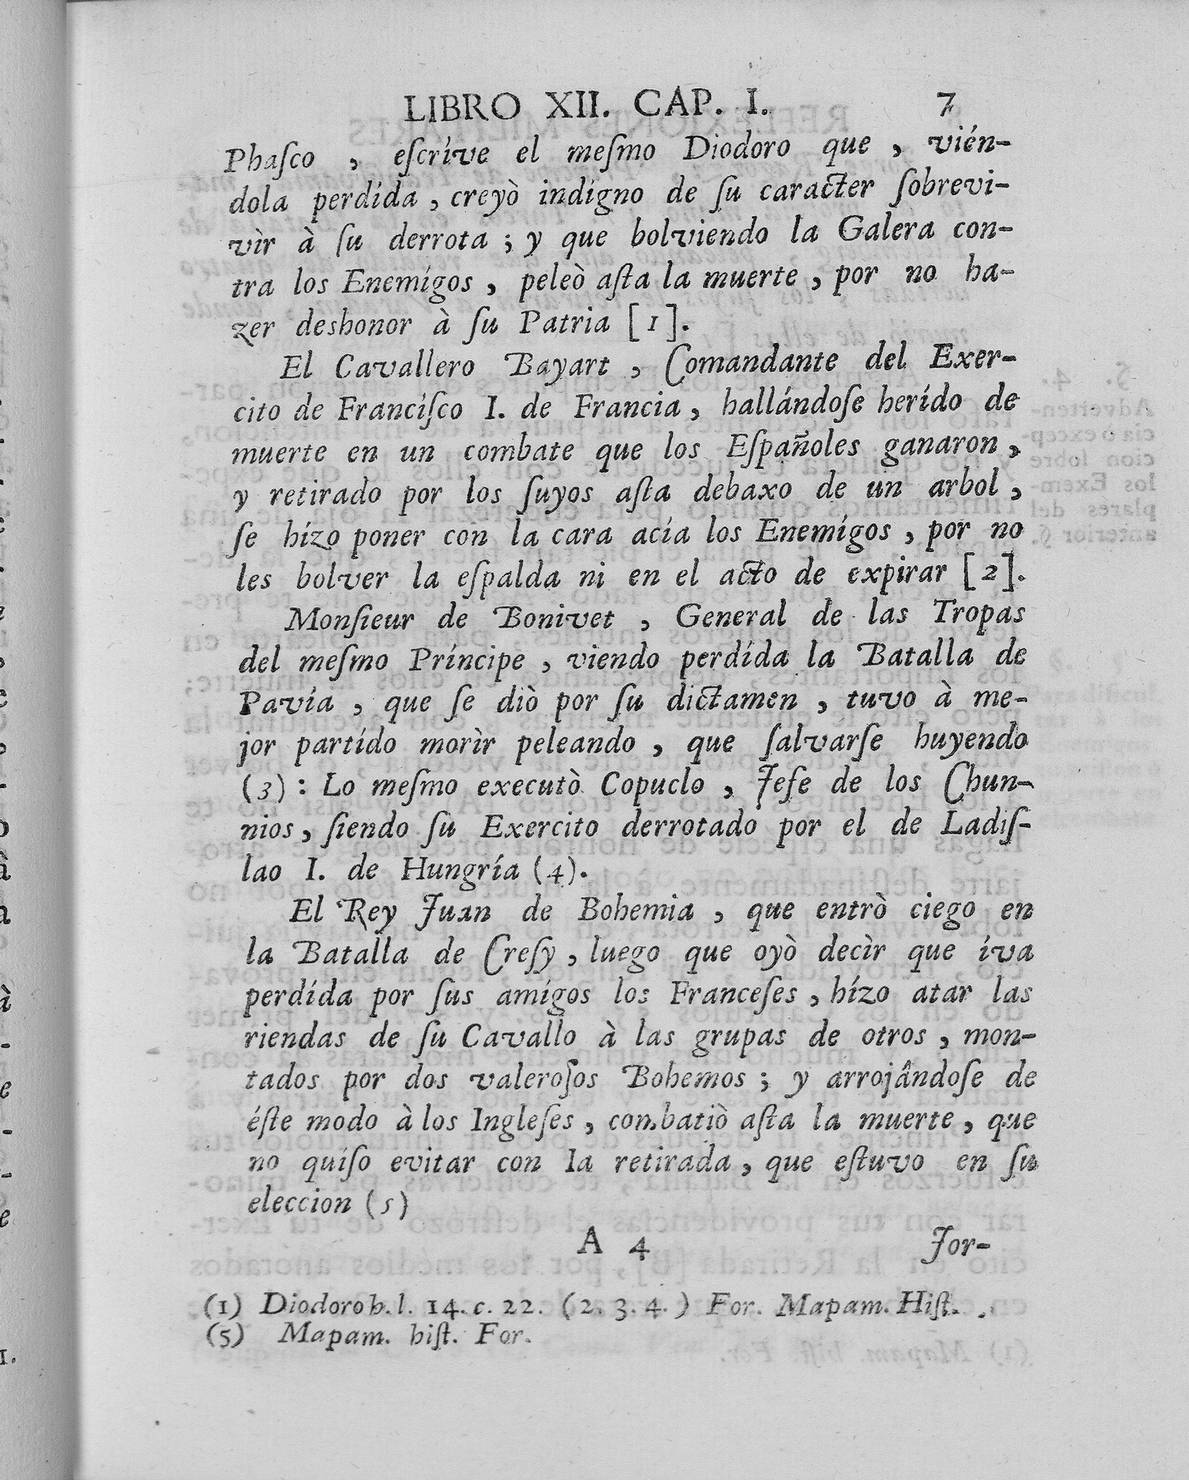 LIBRO XII. CAP. I. 7
Phaſco , eſcríve el meſmo Diodoro que , vién-
dola perdída , creyò indígno de ſu caracter ſobrevi-
vìr à ſu derrota ; y que bolviendo la Galera con-
tra los Enemígos , peleò aſta la muerte , por no ha-
zer deshonor à ſu Patria [1].
El Cavallero Bayart , Comandante del Exer-
cito de Francíſco I. de Francia , hallándoſe herído de
muerte en un combate que los Eſpañoles ganaron ,
y retirado por los ſuyos aſta debaxo de un arbol ,
ſe hízo poner con la cara acía los Enemígos , por no
les bolver la eſpalda ni en el acto de expirar [2].
Monſieur de Bonivet , General de las Tropas
del meſmo Príncipe , viendo perdída la Batalla de
Pavía , que ſe diò por ſu dictamen , tuvo à me-
jor partído morìr peleando , que ſalvarſe huyendo
(3) : Lo meſmo executò Copuclo , Jefe de los Chun-
nios , ſiendo ſu Exercito derrotado por el de Ladiſ-
lao I. de Hungría (4).
El Rey Juan de Bohemia , que entrò ciego en
la Batalla de Creſy , luego que oyò decìr que íva
perdída por ſus amígos los Franceſes , hízo atar las
riendas de ſu Cavallo à las grupas de otros , mon-
tados por dos valeroſos Bohemos ; y arrojândoſe de
éſte modo à los Ingleſes , combatiò aſta la muerte , que
no quiſo evitar con la retirada , que eſtuvo en ſu
eleccion (5)
A 4 Jor-
(1) Diodoro h. l. 14. c. 22. (2. 3. 4. ) For. Mapam. Hiſt.
(5) Mapam. hiſt. For.